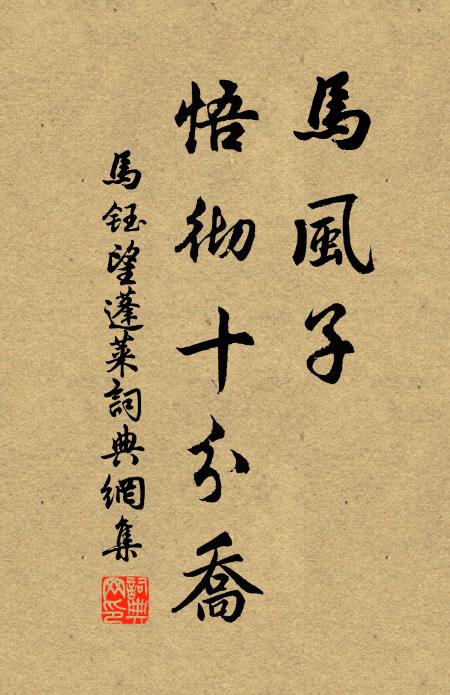 馬風子
悟彻十分喬
馬鈺望蓬萊詞典網集
詞典網印